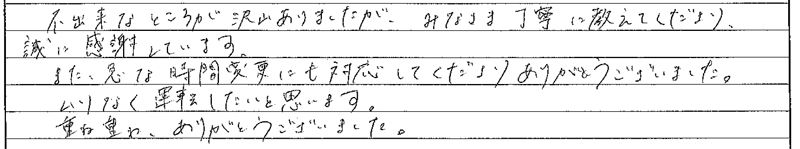 不出来なところが沢山ありましたが、みなさま丁寧に教えてくださり、
誠に感謝しています。
また、急な時間変更にも対応してくださりありがとうございました。
ムリなく運転したいと思います。
重ね重ね、ありがとうございました。